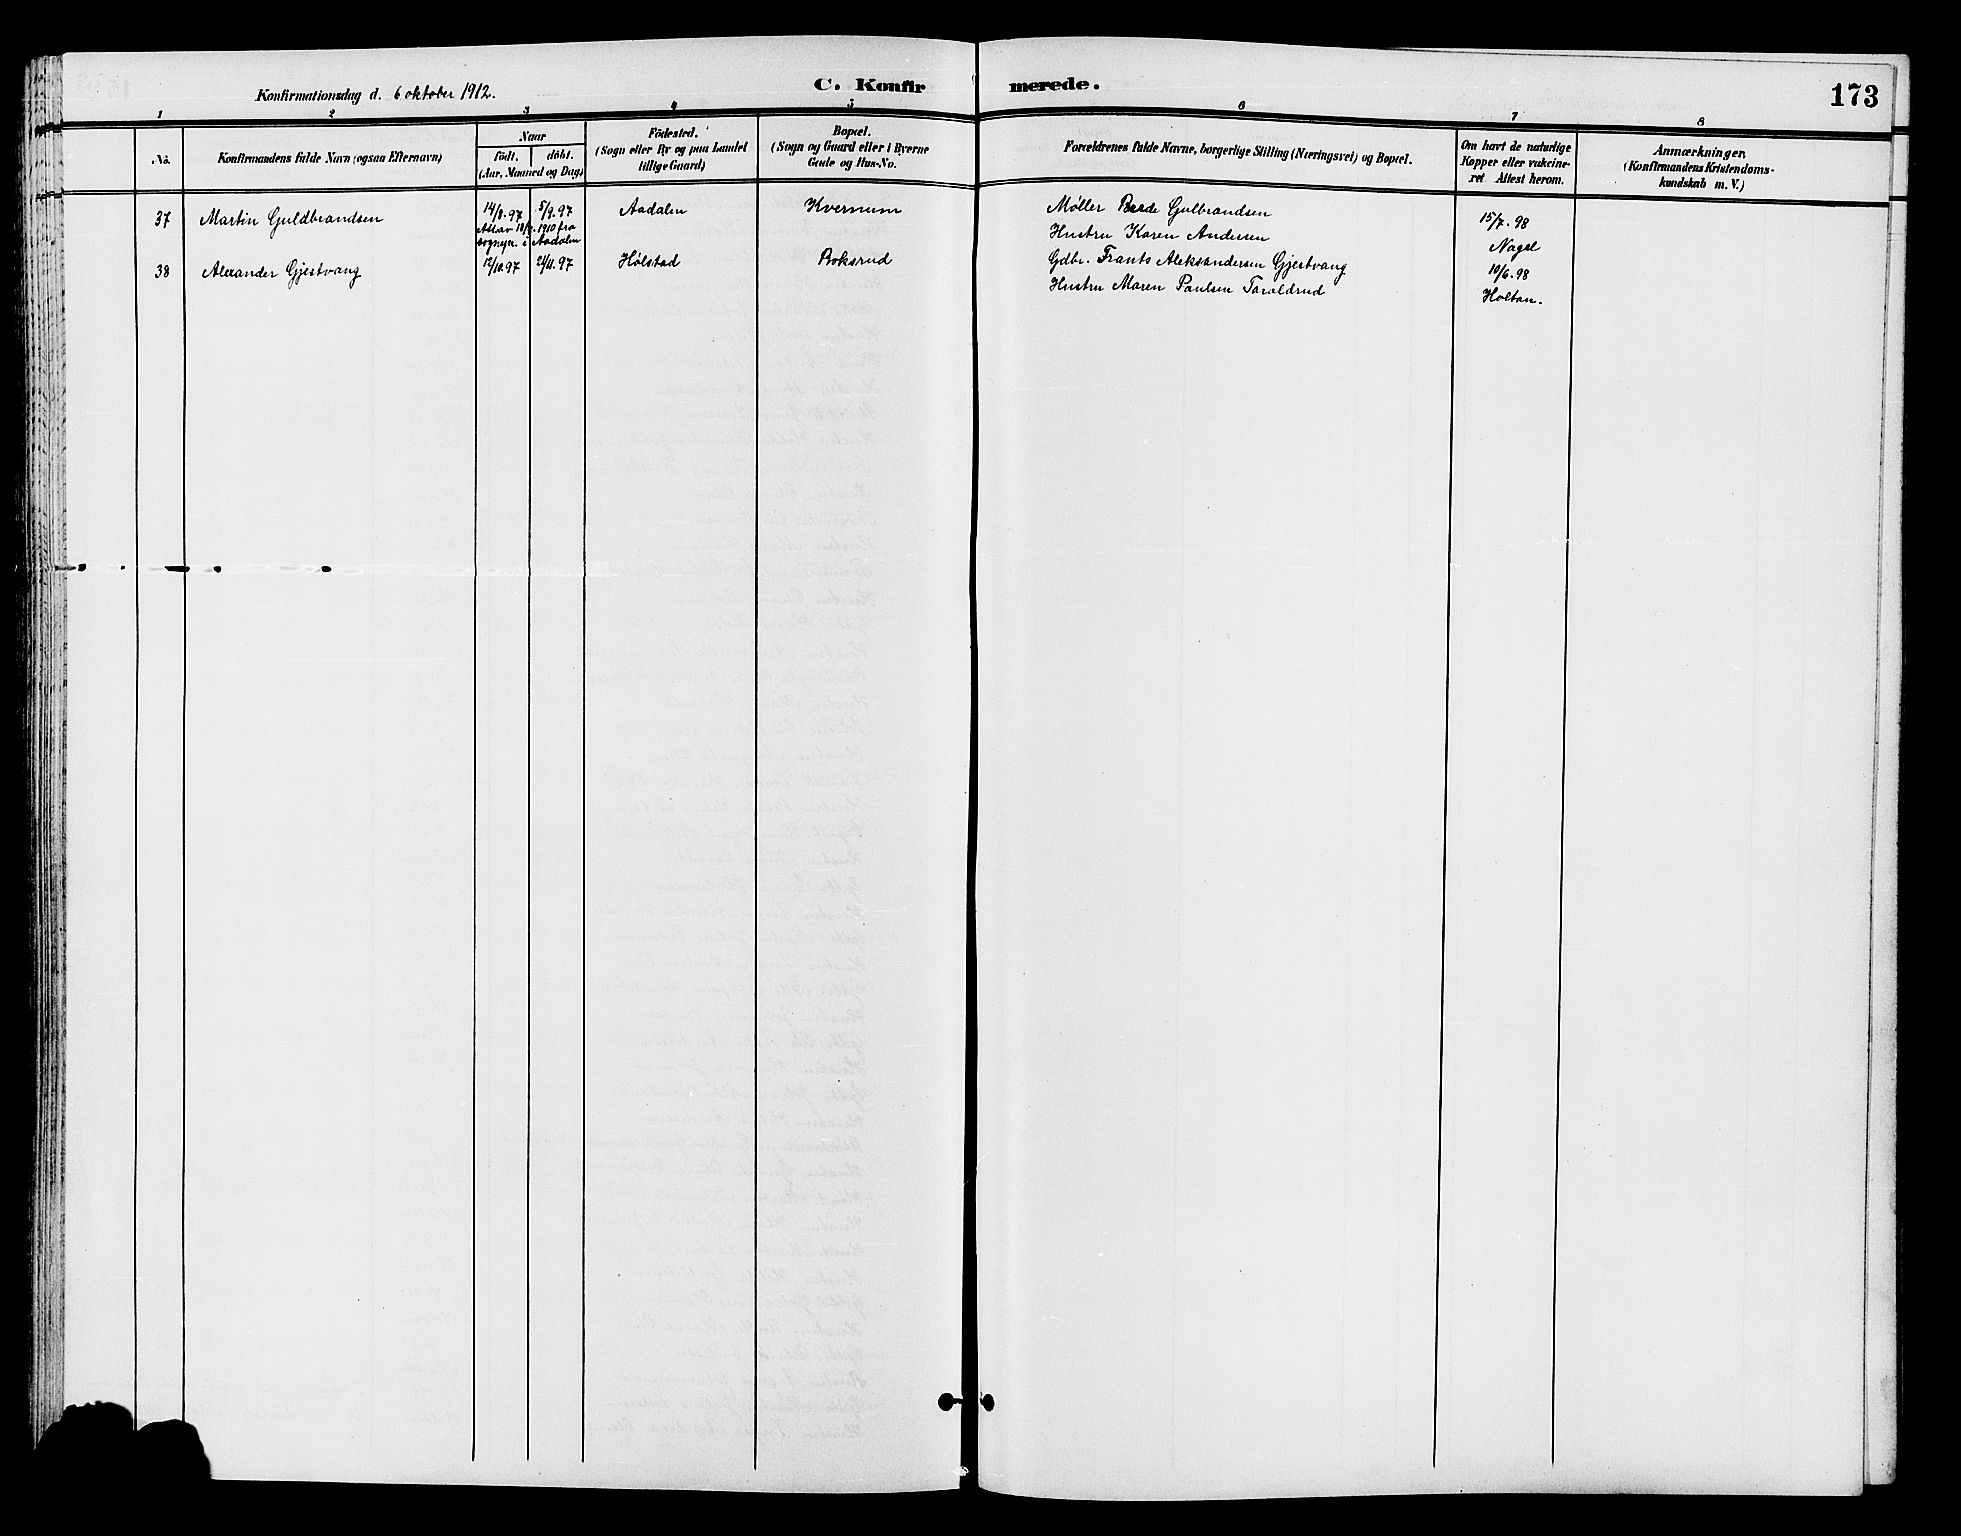 Konfirmationsdag d. 6 oktober 1912.
C. Konfirmerede.
173
1 2 3 4 5 6 7 8
No.
Konfirmandens fulde Navn (ogsaa Efternavn)
Naar
födt. döbt.
(Aar, Maaned og Dag)
Födested.
(Sogn eller By og paa Landet
tillige Gaard)
Bopæl.
(Sogn og Gaard eller i Byerne
Gade og Hus-No.
Forældrenes fulde Navne, borgerlige Stilling (Næringsvei) og Bopæl.
Om havt de naturlige
Kopper eller vakcine-
ret Attest herom.
Anmærkninger.
(Konfirmandens Kristendoms-
kundskab m. V.)
37 Martin Guldbrandsen 14/8.97 5/9.97 Aadalen Kvernum Møller Brede Gulbrandsen 15/7.98
1910 fra
sognepr. i Aadalen
Hustru Karen Andersen Nagel
38 Alexander Gjestvang 12/10.97 21/11.97 Hølstad Boksrud Gdbr. Frants Aleksandersen Gjestvang 10/6.98
Hustru Maren Paulsen Taraldrud Holtan.